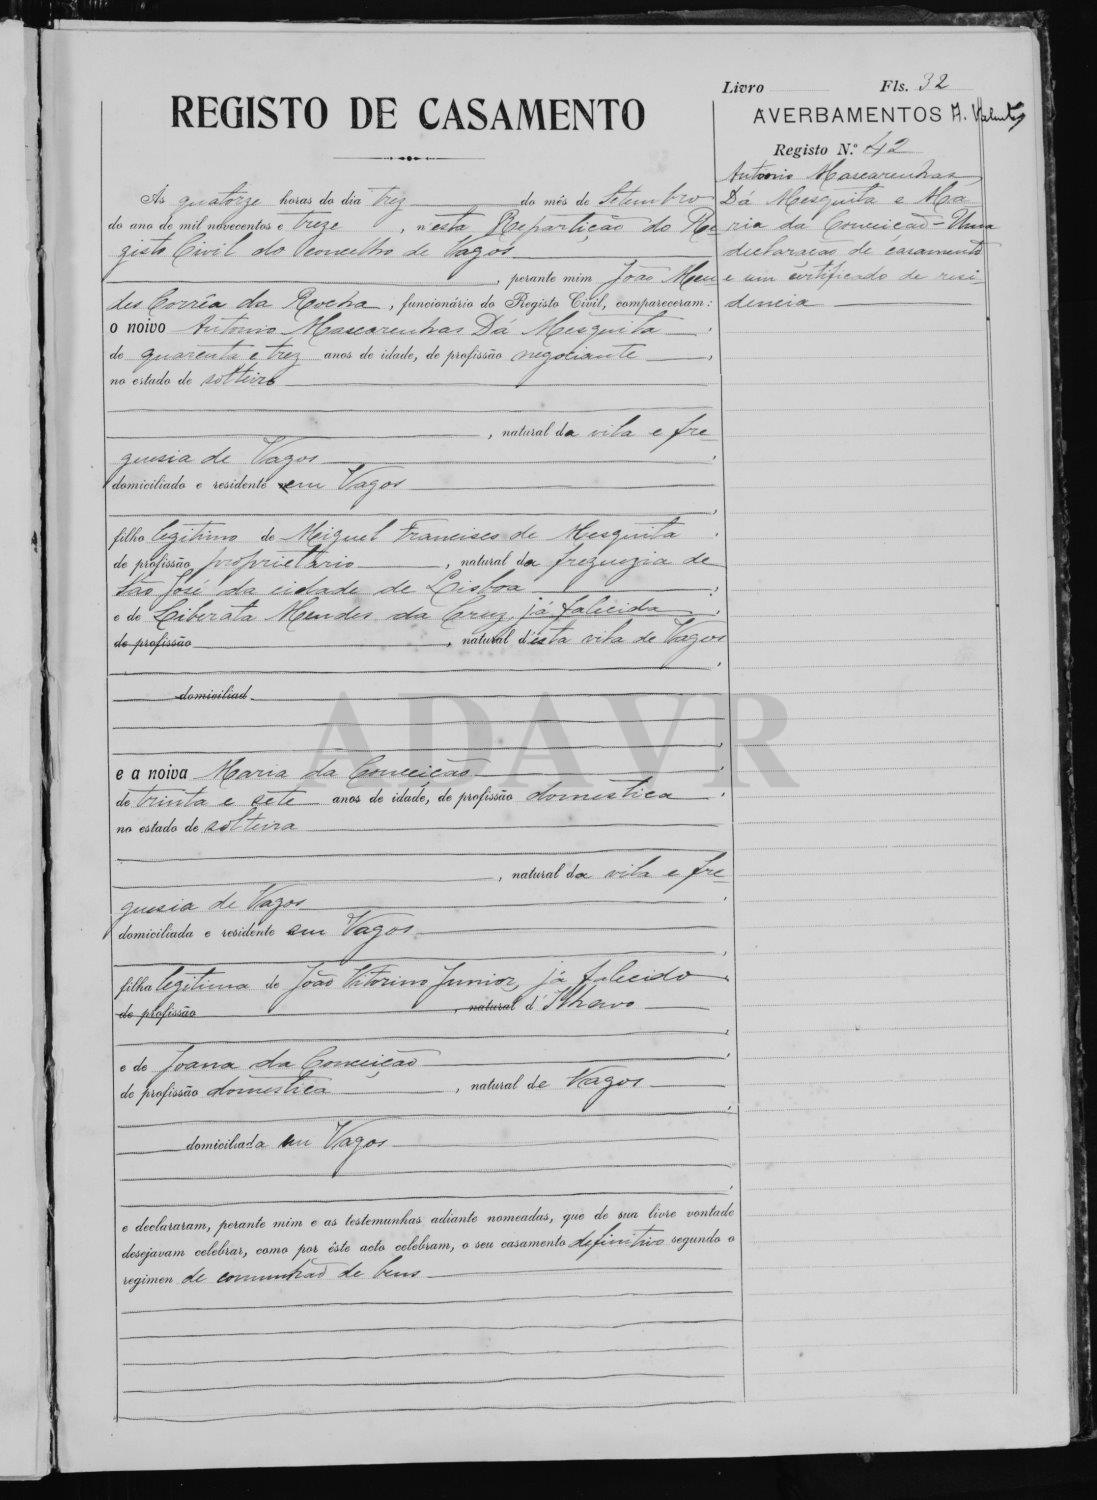 Livro Fls. 32
REGISTO DE CASAMENTO
AVERBAMENTOS
Registo N.º 42
Antonio Mascarenhas
Dá Mesquita e Ma
ria da Conceição = Uma
declaração de casamento
e um certificado de resi
dencia
Ás quatorze horas do dia trez do mês de Setembro
do ano de mil novecentos e treze, n'esta Repartição do Re-
gisto Civil do concelho de Vagos
, perante mim João Men
des Corrêa da Rocha, funcionário do Registo Civil, compareceram:
o noivo Antonio Mascarenhas Dá Mesquita
de quarenta e trez anos de idade, de profissão negociante,
no estado de solteiro
, natural da vila e fre
guesia de Vagos
domiciliado e residente em Vagos
filho legitimo de Miguel Francisco de Mesquita
de profissão proprietario, natural da freguezia de
São José da cidade de Lisboa
e de Liberata Mendes da Cruz, já falecida
de profissão, natural d'esta vila de Vagos
domiciliad
ADAVR
e a noiva Maria da Conceição
de trinta e sete anos de idade, de profissão domestica
no estado de solteira
, natural da vila e fre
guesia de Vagos
domiciliada e residente em Vagos
filha legitima de João Vitorino Junior, já falecido
de profissão, natural d'Ilhavo
e de Joana da Conceição
de profissão domestica, natural de Vagos
domiciliada em Vagos
e declararam, perante mim e as testemunhas adiante nomeadas, que de sua livre vontade
desejavam celebrar, como por êste acto celebram, o seu casamento definitivo segundo o
regimen de comunhão de bens